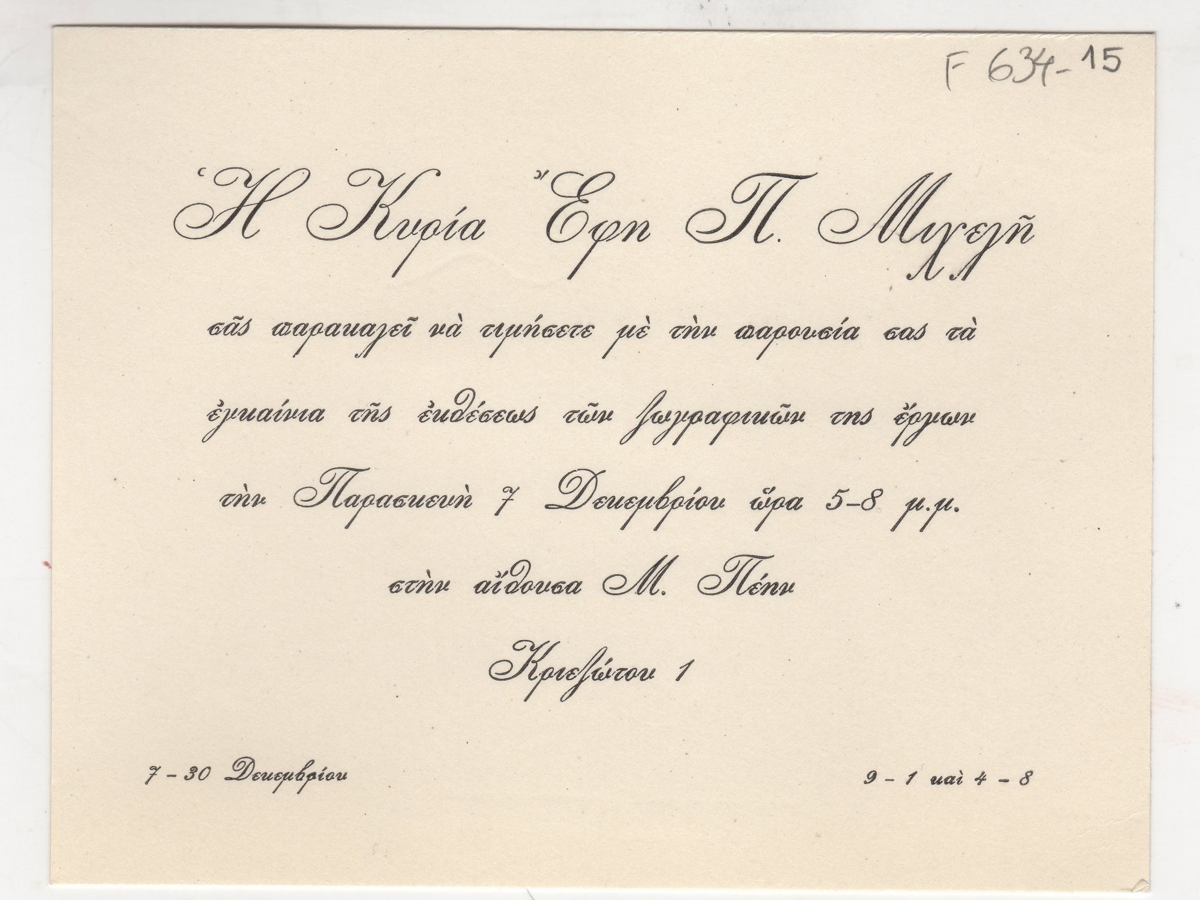 F 634-15
Ἡ Κυρία Ἔφη Π. Μιχελῆ
σᾶς παρακαλεῖ νὰ τιμήσετε μὲ τὴν παρουσία σας τὰ
ἐγκαίνια τῆς ἐκθέσεως τῶν ζωγραφικῶν της ἔργων
τὴν Παρασκευὴ 7 Δεκεμβρίου ὥρα 5-8 μ.μ.
στὴν αἴθουσα Μ. Πέην
Κριεζώτου 1
7 - 30 Δεκεμβρίου
9 - 1 καὶ 4 - 8